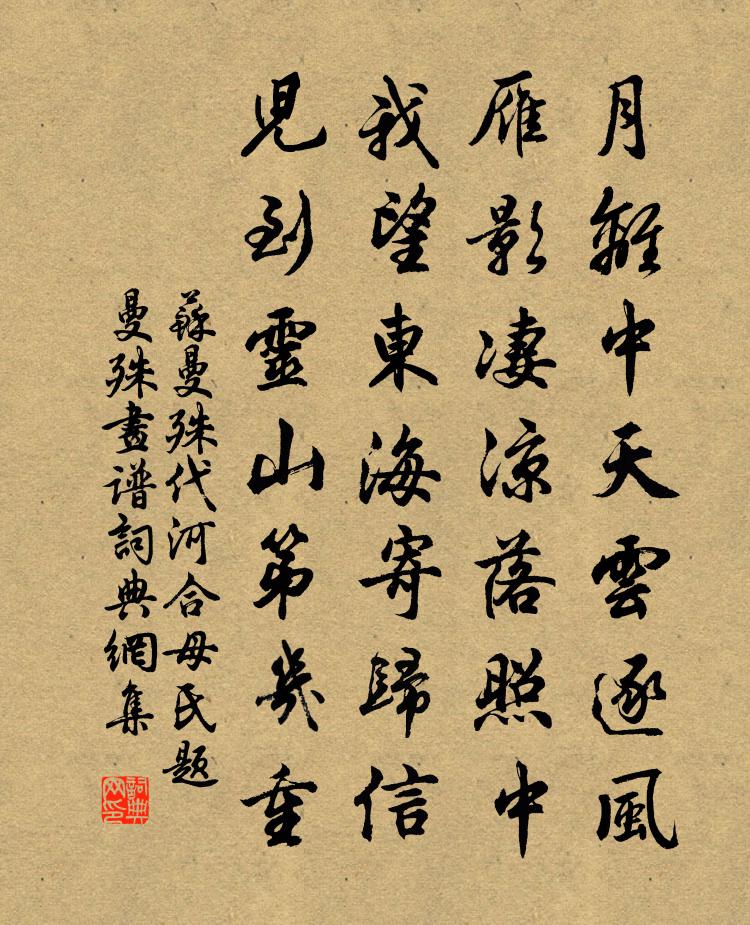 月離中天雲逐風
雁影凄涼落照中
我望東海寄歸信
児到靈山第幾重
蘇曼殊代河合母氏題
曼殊畫谱詞典網集
詞典网印